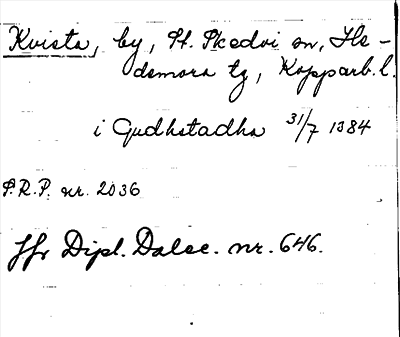 Kvista, by, St. Skedvi sn, He-
demora tg, Kopparb. l.
i Qudhstadha 31/7 1384
S.R.P. nr. 2036
Jfr Dipl. Dalec. nr. 646.